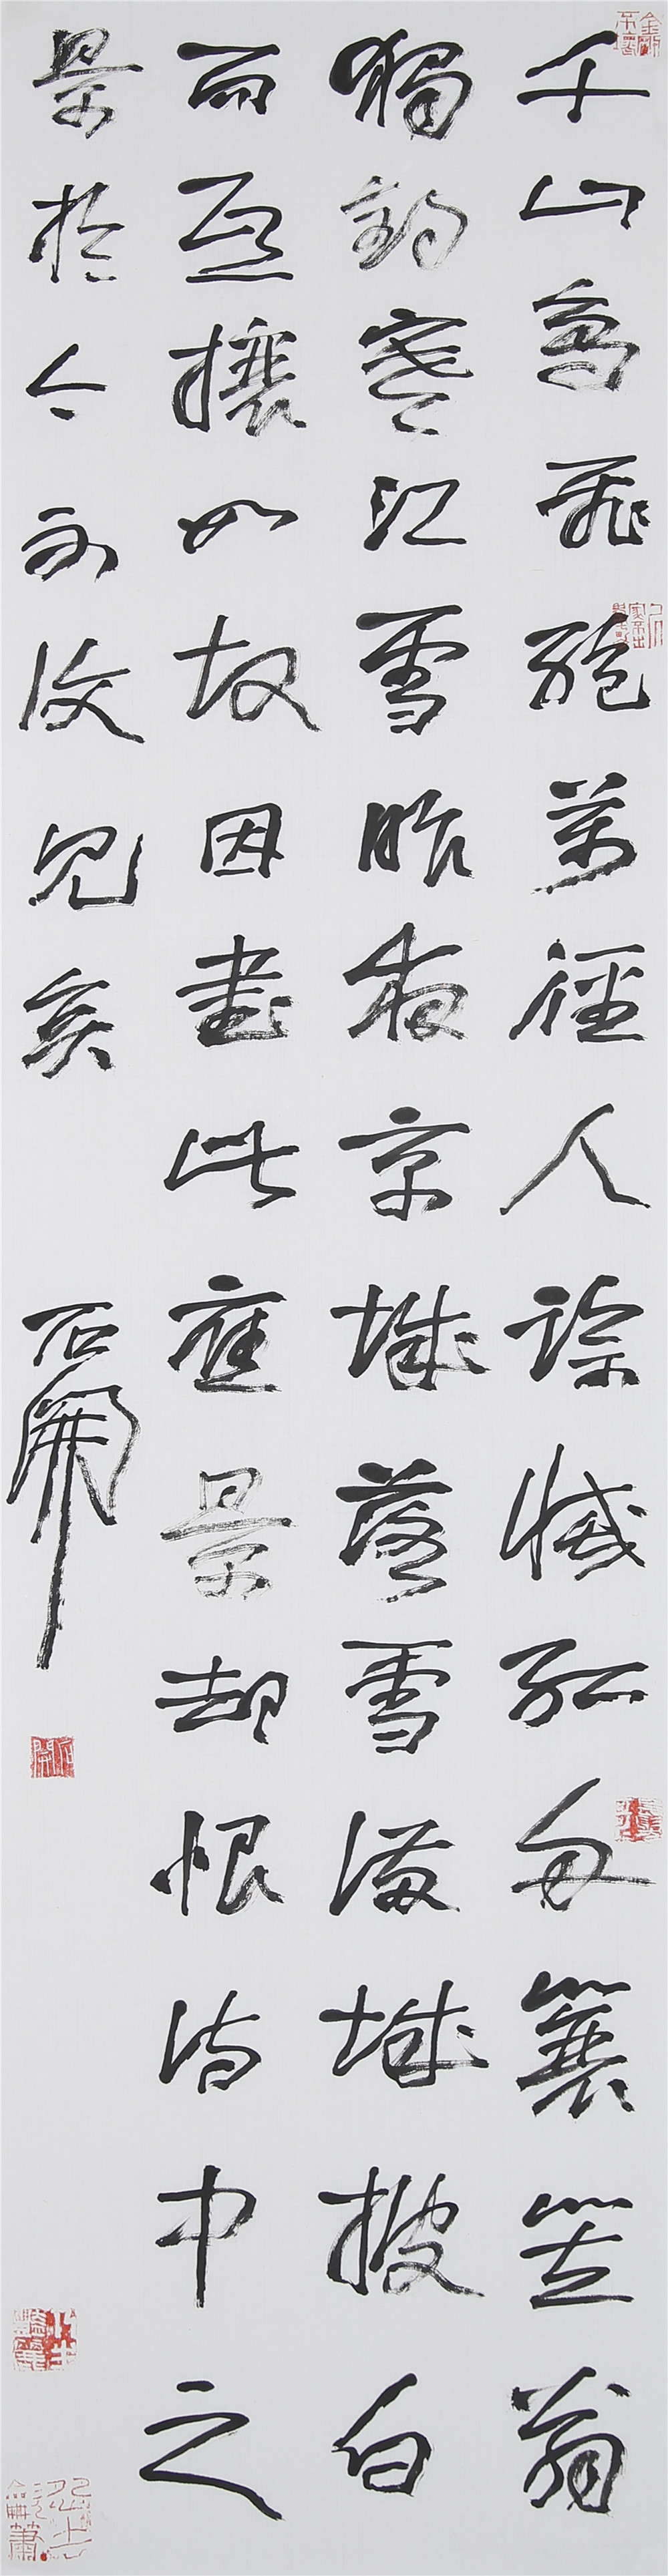 千山鳥飛絕萬徑人踪滅孤舟簑笠翁
獨釣寒江雪昨夜京城落雪滿城披白
而熙攘如故因書此應景却恨詩中之
景於今不復見矣 石開